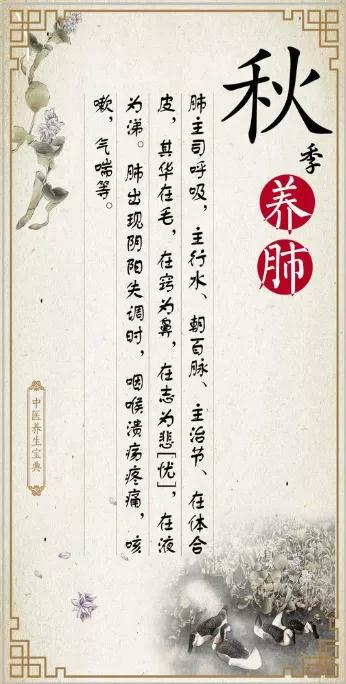 秋
季
养
肺
肺主司呼吸，主行水、朝百脉、主治节、在体合
皮，其华在毛，在窍为鼻，在志为悲[忧]，在液
为涕。肺出现阴阳失调时，咽喉溃疡疼痛，咳
嗽，气喘等。
中医养生宝典